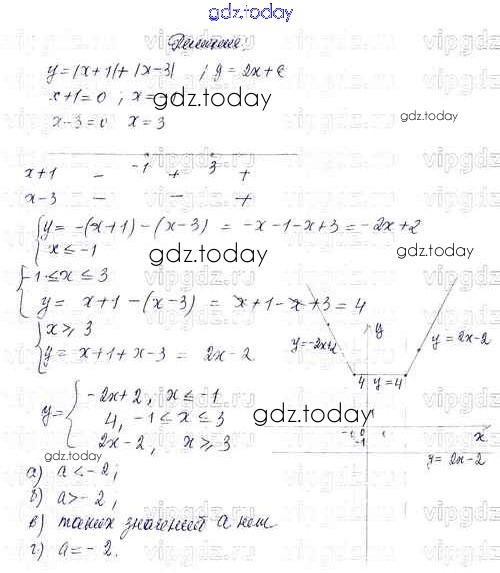 gdz.today
Решение.
y = |x+1| + |x-3| ; y = 2x + a
x+1=0 ; x=-1
gdz.today
gdz.today
x-3=0 x=3
-1 3
x+1 - + +
x-3 - - +
y = -(x+1) - (x-3) = -x-1-x+3 = -2x+2
x ≤ -1
gdz.today
-1 ≤ x ≤ 3
y = x+1-(x-3) = x+1-x+3 = 4
x ≥ 3
y = x+1+x-3 = 2x-2
y
y=-2x+2
y = 2x-2
4 y=4
y = { -2x+2, x ≤ -1
4, -1 ≤ x ≤ 3
2x-2, x ≥ 3
gdz.today
-1 0 1 x
-1
y = 2x-2
gdz.today
а) a < -2;
б) a > -2;
в) таких значений a нет
г) a = -2.
gdz.today